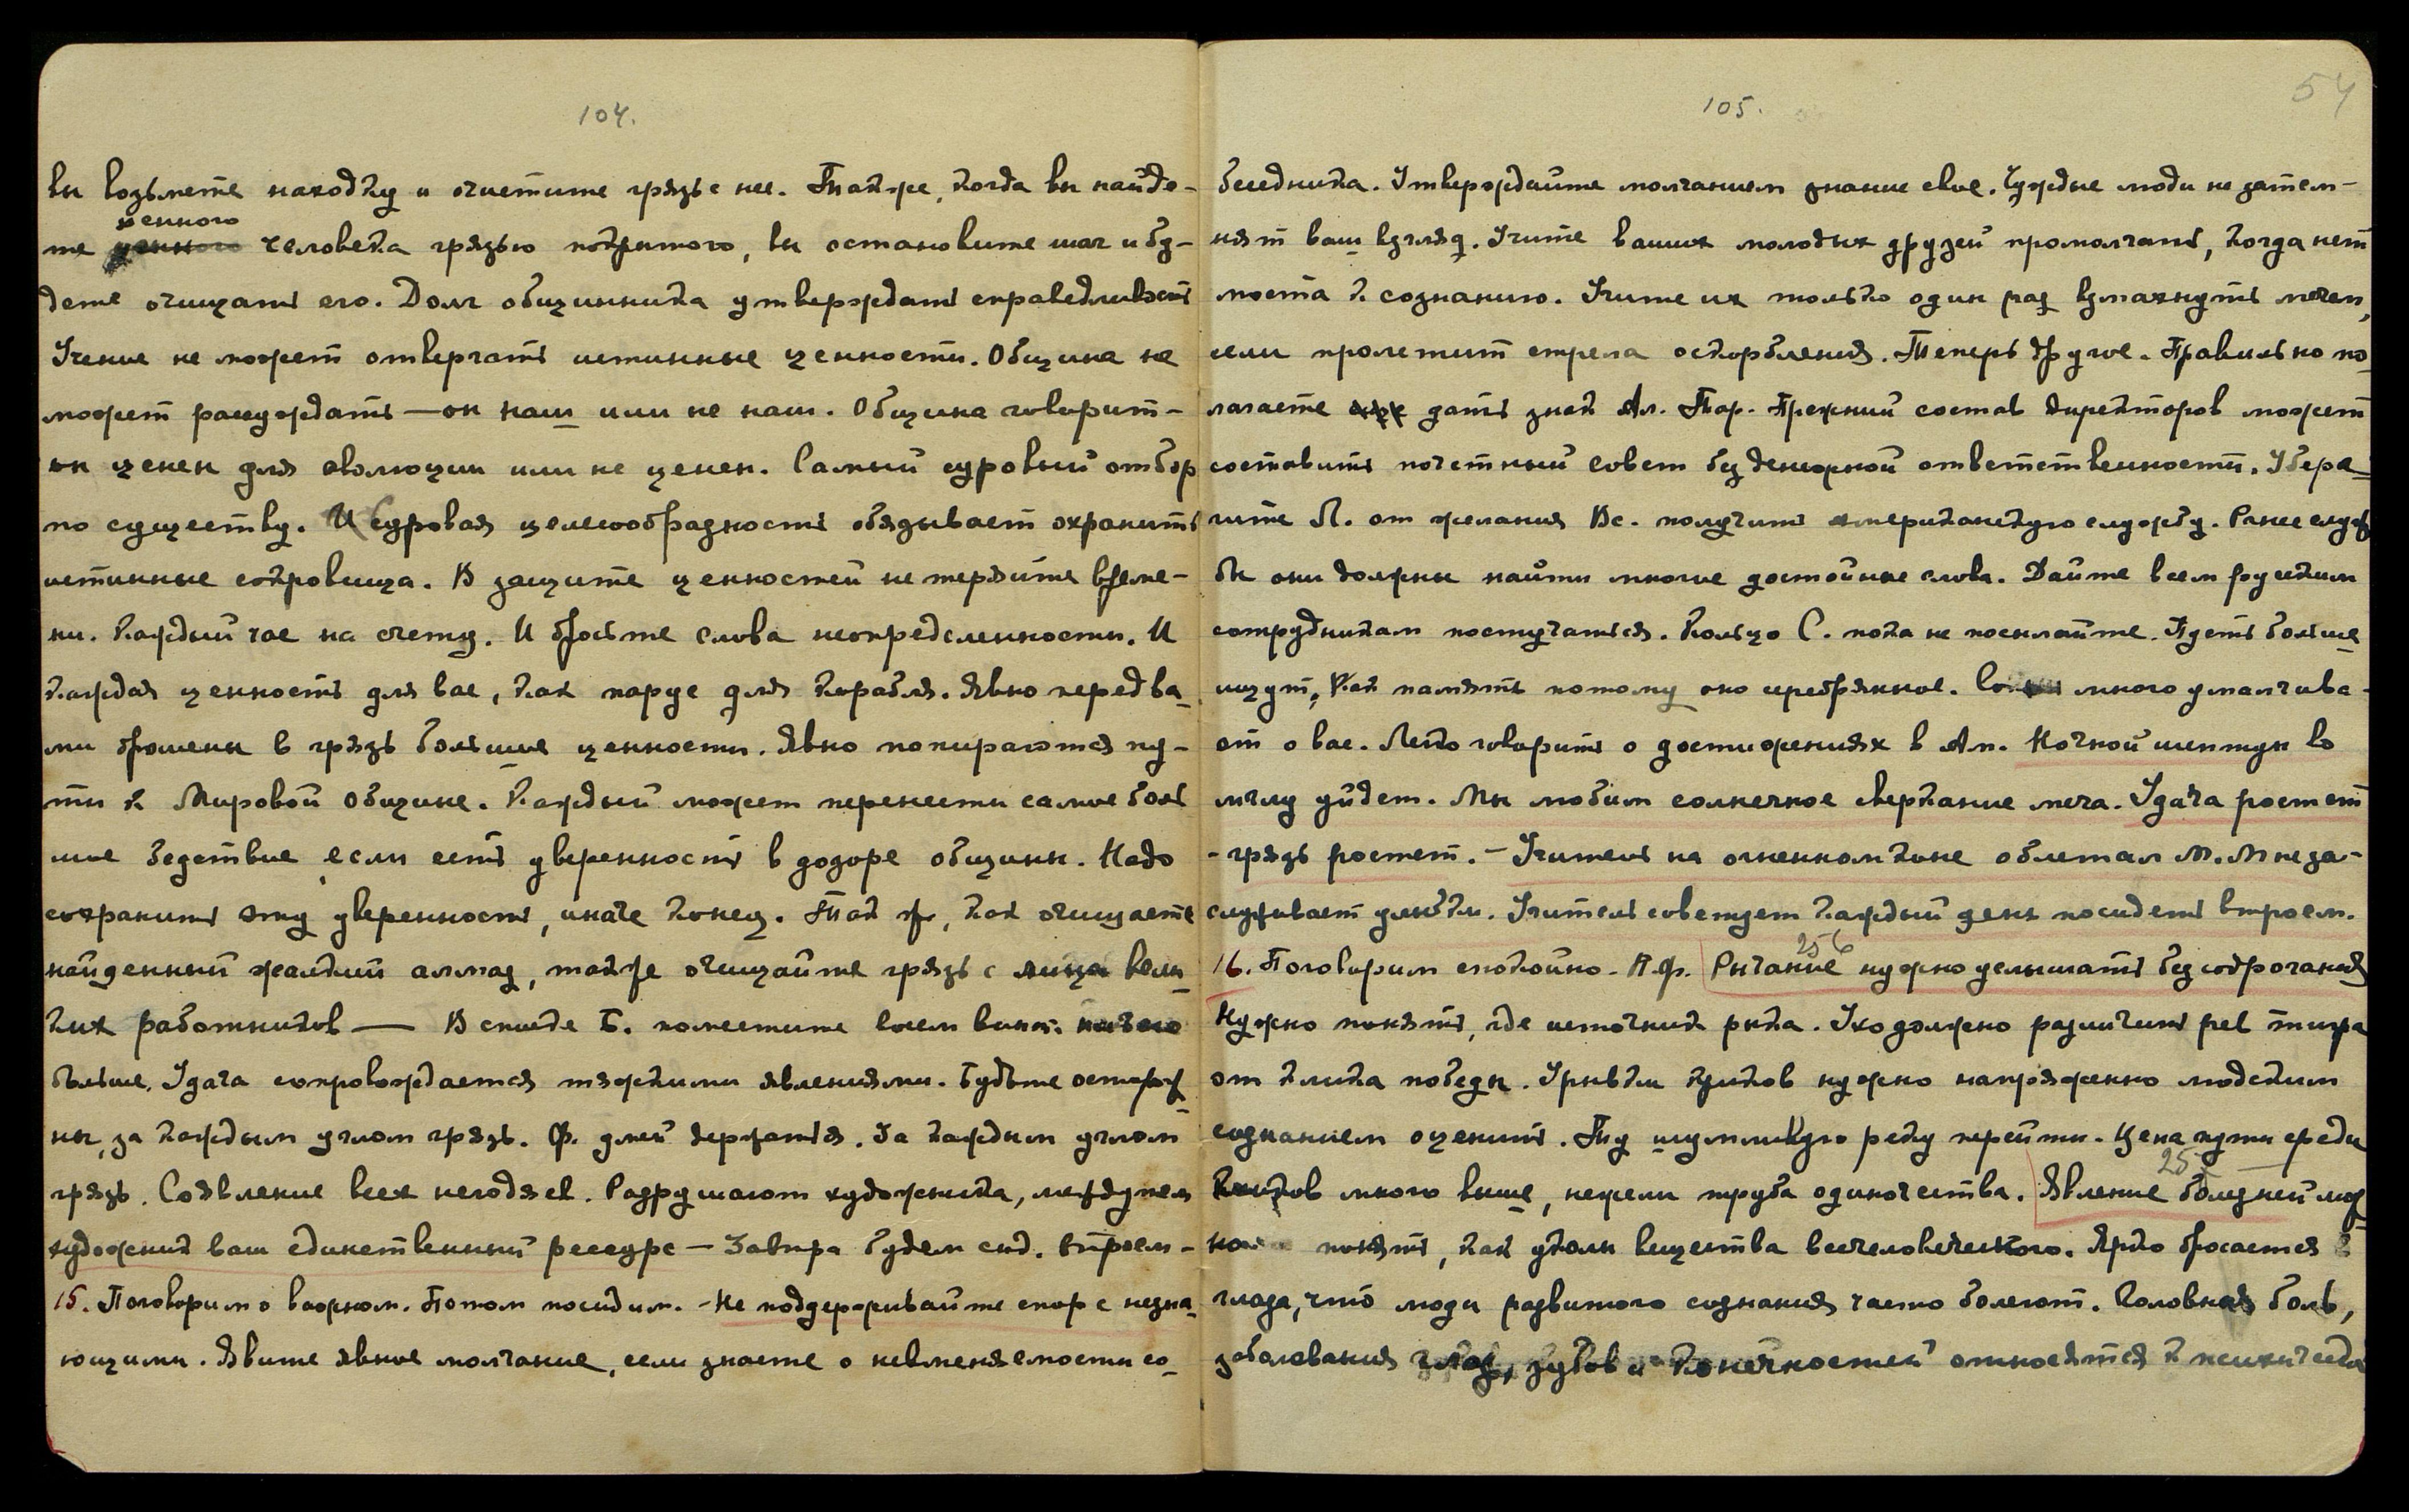 104.
вы возьмете находку и очистите грязь с нее. Также, когда вы найде-
ценного
те ценного человека грязью покрытого, вы остановите шаг и бу-
дете очищать его. Долг общинника утверждать справедливость
Учение не может отвергать истинные ценности. Община не
может рассуждать — он наш или не наш. Община говорит —
он ценен для эволюции или не ценен. Самый суровый отбор
по существу. И суровая целесообразность обязывает охранить
истинные сокровища. В защите ценностей не теряйте време-
ни. Каждый час на счету. И бросьте слова неопределенности. И
каждая ценность для вас, как парус для корабля. Явно перед ва-
ми брошены в грязь большие ценности. Явно попираются пу-
ти к Мировой Общине. Каждый может перенести самое боль
шое бедствие, если есть уверенность в дозоре общины. Надо
сохранить эту уверенность, иначе конец. Так же, как очищаете
найденный жалкий алмаз, также очищайте грязь с лица вели-
ких работников — В списке Б. поместите всем
больше. Удача сопровождается тяжкими явлениями. Будьте осторож-
ны, за каждым углом грязь. Ф. умей держаться. За каждым углом
грязь. Соявление всех негодяев. Разрушают художника,
художник ваш единственный ресурс — Завтра будем сид. втроем —
15. Поговорим о важном. Потом посидим. — Не поддерживайте спор с незна-
ющими. Явите явное молчание, если знаете о невменяемости со-
105.
54
беседника. Утверждайте молчанием знание свое. Чуждые люди не затем-
нят ваш взгляд. Учите ваших молодых друзей промолчать, когда нет
моста к сознанию. Учите их только один раз взмахнуть мечем,
если пролетит стрела оскорбления. Теперь другое. Правильно по-
лагаете дать знак Ал. Тар. Прежний состав директоров может
составить почетный совет без денежной ответственности. Убере-
гите Л. от желания Вс. получить американскую службу. Ранее служ
бы они должны найти многие достойные слова. Дайте всем русским
сотрудникам постучаться. Кольцо С. пока не посылайте. Пусть больше
ищут, Как память потому оно серебряное. много умалчива-
ют о вас. Легко говорить о достижениях в Ам. Ночной шептун во
мглу уйдет. Мы любим солнечное сверкание меча. Удача ростет
- грязь ростет. — Учитель на огненном коне облетал М. М не за-
служивает улыбки. Учитель советует каждый день посидеть втроем.
256
16. Поговорим спокойно. П.ф. Рычание нужно услышать без содрогания
Нужно понять, где источник рыка. Ухо должно различить рев тигра
от клика победы. Урывки криков нужно напряженно людским
сознанием оценить. Ту шумливую реку перейти. Цена пути среди
25
кликов много выше, нежели труба одиночества. Явление болезней мож-
но понять, как уколы вещества всечеловеческого. Ярко бросается в
глаза, что люди развитого сознания часто болеют. Головная боль,
заболевания глаз, зубов и конечностей относятся к психическо